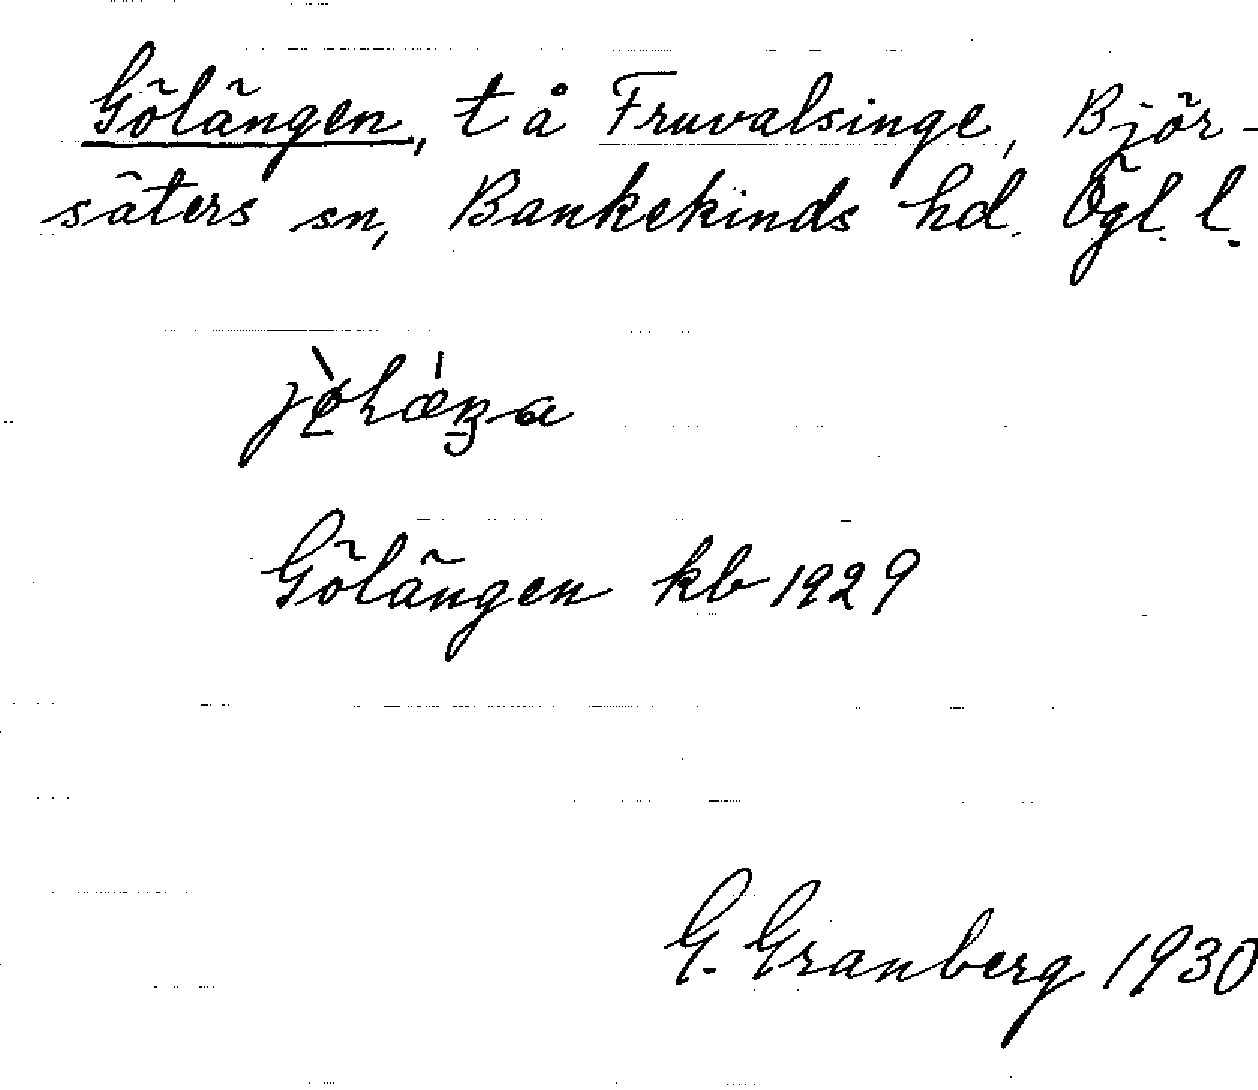 Gölängen, t å Fruvalsinge, Björ-
säters sn, Bankekinds hd. Ögl. l.
Gölängen kb 1929
G. Granberg 1930